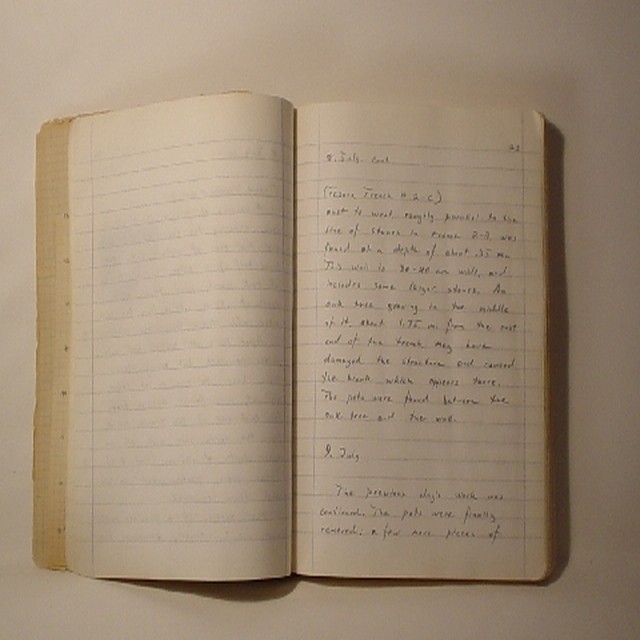 8. July cont.
(Tesoro Trench # 2-C)
east to west, roughly parallel to the
line of stones in trench 2-B, was
found at a depth of about 35 cm.
This wall is 30-40 cm wide, and
includes some larger stones. An
oak tree growing in the middle
of it about 1.75 m from the east
end of the trench may have
damaged the structure and caused
the blank which appears there.
The pots were found between the
oak tree and the wall.
9. July
The previous day's work was
continued. The pots were finally
removed: a few more pieces of